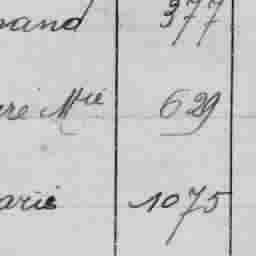 mand 377
re Mie 629
arie 1075